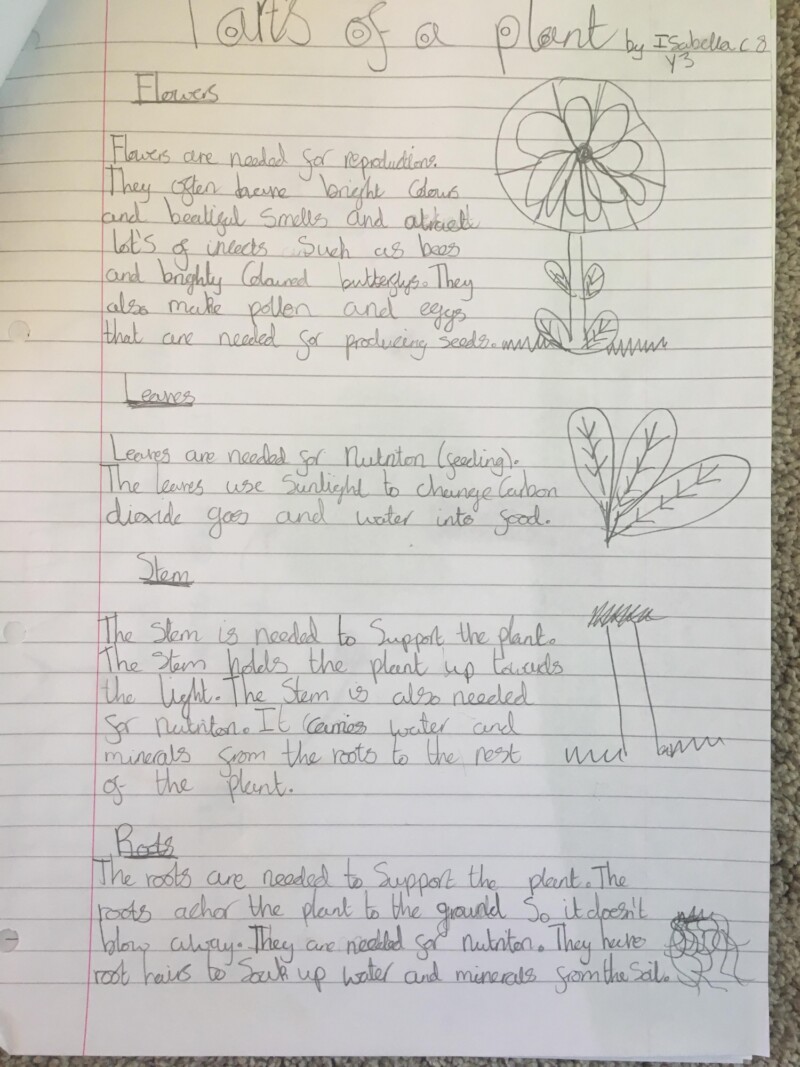 Parts of a plant by Isabella C 8
Y3
Flowers
Flowers are needed for reproductions.
They often have bright Colous
and beatiful Smells and atract
lot's of insects Such as bees
and brighly Coloured butterflys. They
also make pollen and eggs
that are needed for producing seeds.
Leaves
Leaves are needed for Nutriton (feeding).
The leaves use Sunlight to change Carbon
dioxide gas and water into food.
Stem
The Stem is needed to Support the plant.
The Stem holds the plant up towards
the light. The Stem is also needed
for nutriton. It Carries water and
minerals from the roots to the rest
of the plant.
Roots
The roots are needed to Support the plant. The
roots achor the plant to the ground So it doesn't
blow away. They are needed for nutriton. They have
root hairs to Soak up water and minerals from the Soil.